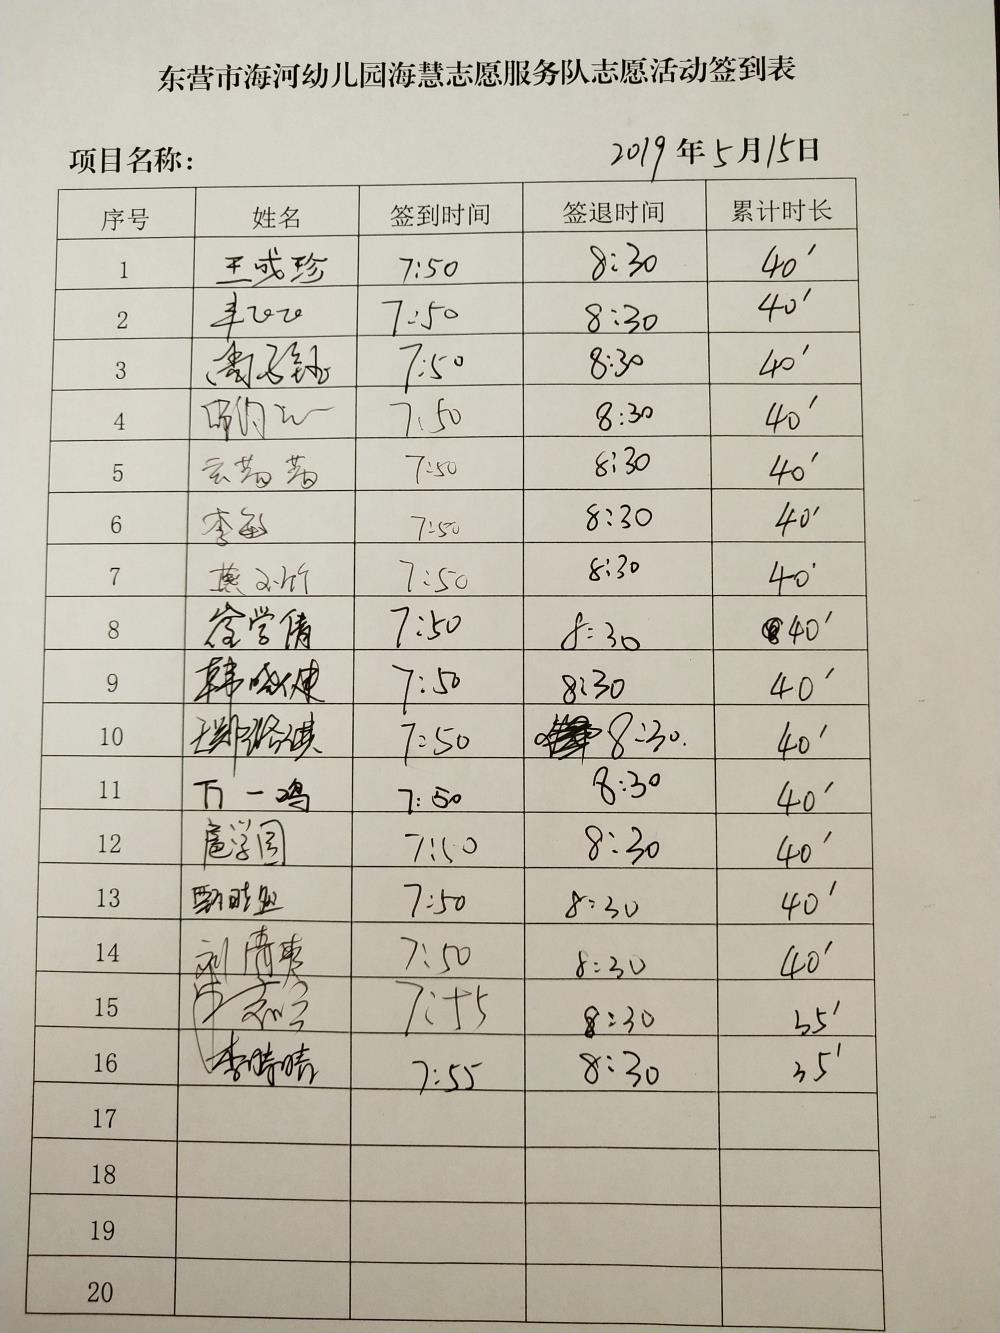 东营市海河幼儿园海慧志愿服务队志愿活动签到表
项目名称: 2019年5月15日
序号 姓名 签到时间 签退时间 累计时长
1 王成珍 7:50 8:30 40'
2 7:50 8:30 40'
3 7:50 8:30 40'
4 7:50 8:30 40'
5 云茜茜 7:50 8:30 40'
6 李敏 7:50 8:30 40'
7 7:50 8:30 40'
8 徐学倩 7:50 8:30 40'
9 韩晓健 7:50 8:30 40'
10 7:50 8:30. 40'
11 万一鸣 7:50 8:30 40'
12 扈学园 7:50 8:30 40'
13 7:50 8:30 40'
14 刘清爽 7:50 8:30 40'
15 7:55 8:30 35'
16 李晴晴 7:55 8:30 35'
17
18
19
20